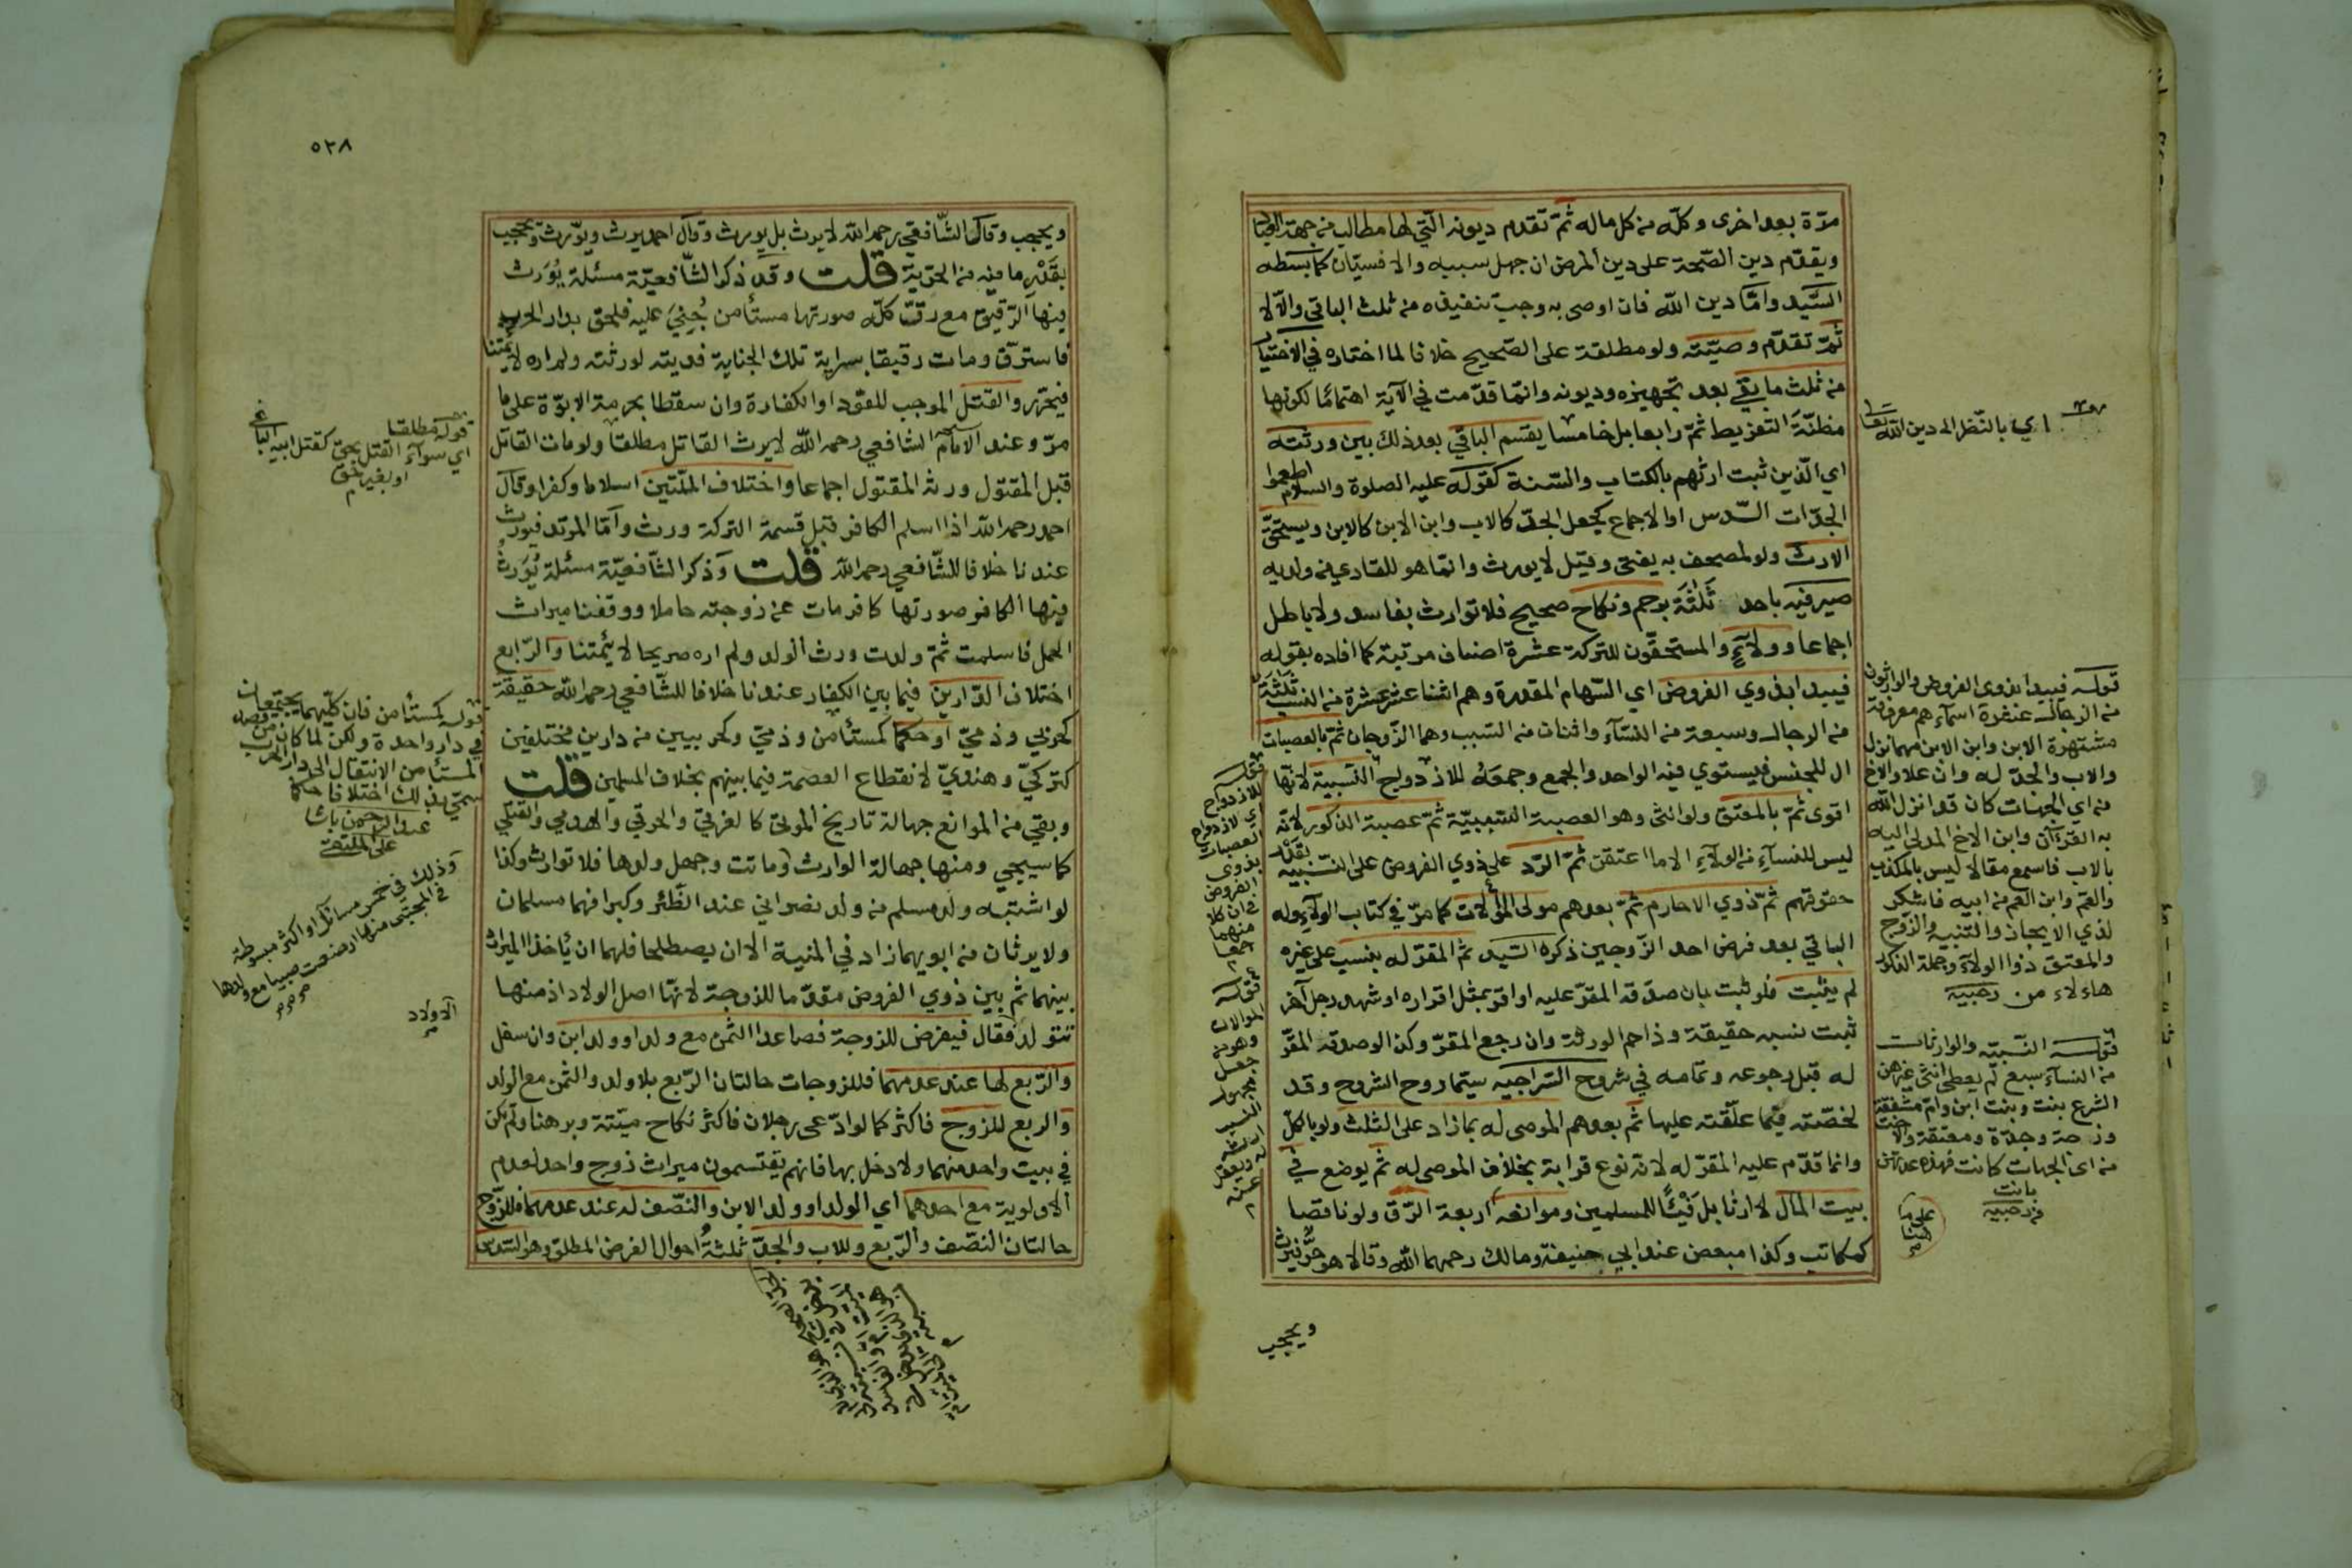 مرّة بعد اخرى وكلّه من كل ماله ثمّ تقدم ديونه الّتي لها مطالب من جهة العباد
ويقدّم دين الصّحة على دين المرض ان جهل سببه والا فسيّان كما بسطه
السّيد وامّا دين الله فان اوصى به وجب تنفيذه من ثلث الباقي والّا لا
ثمّ تقدّم وصيّته ولو مطلقة على الصّحيح خلافا لما اختاره في الاختيار
من ثلث ما بقي بعد تجهيزه وديونه وانّما قدّمت في الآية اهتمامًا لكونها
مظنّة التفريط ثمّ رابعا بل خامسا يقسم الباقي بعد ذلك بين ورثته
اي الّذين ثبت ارثهم بالكتاب والسّنة كقوله عليه الصلوة والسلام اطعموا
الجدّات السّدس او الاجماع كجعل الجدّ كالاب وابن الابن كالابن ويستحقّ
الارث ولو لمصحف به يفتى وقيل لا يورث وانّما هو للقاري من ولديه
صيرفيه باحد ثلثة برحم ونكاح صحيح فلا توارث بفاسد ولا باطل
اجماعا وولآء والمستحقّون للتركة عشرة اصناف مرتبة كما افاده بقوله
فيبدا بذوي الفروض اي السّهام المقدرة وهم اثنا عشر عشرة من النسب ثلاثة
من الرجال وسبعة من النسآء واثنان من السبب وهما الزّوجان ثمّ بالعصبات
ال للجنس فيستوي فيه الواحد والجمع وجمعه للازدواج النسبية لانّها
اقوى ثمّ بالمعتق ولو انثى وهو العصبة السّببيّة ثمّ عصبة الذكور لانه
ليس للنسآء من الولآء الا ما اعتقن ثمّ الرّد على ذوي الفروض على النّسبيه بقدر
حقوقهم ثمّ ذوي الارحام ثمّ بعدهم مولى الموالات كما مرّ في كتاب الولآء وله
الباقي بعد فرض احد الزّوجين ذكره السّيد ثم المقرّ له بنسب على غيره
لم يثبت فلو ثبت بان صدّقه المقرّ عليه او اقرّ بمثل اقراره او شهد رجل آخر
ثبت نسبه حقيقة وزاحم الورثة وان رجع المقرّ وكذا لو صدقه المقرّ
له قبل رجوعه وتمامه في شروح السّراجيه سيّما روح الشروح وقد
لخصته فيما علّقته عليها ثم بعدهم الموصى له بما زاد على الثلث ولو بالكلّ
وانما قدّم عليه المقرّ له لانّه نوع قرابة بخلاف الموصى له ثمّ يوضع في
بيت المال لا ارثا بل فيئًا للمسلمين وموانعه اربعة الرّق ولو ناقصا
كمكاتب وكذا مبعض عند ابي حنيفة ومالك رحمهما الله وقالا هو حرّ فيرث
ويحجب
اي بالنّظر الى دين الله تعالى
قوله فيبدا بذوي الفروض والوارثون
من الرجال عشرة اسمآءهم معروفة
مشتهرة الابن وابن الابن مهما نزل
والاب والجدّ له وان علا والاخ
من اي الجهات كان قد انزل الله
به القرءآن وابن الاخ المدلي اليه
بالاب فاسمع مقالا ليس بالمكذب
والعمّ وابن العم من ابيه فاشكر
لذي الايجاز والتنبيه والزّوج
والمعتق ذو الولآء فجملة الذكور
هاءلاء من رحبيه
قوله النّسبيّه والوارثات
من النسآء سبع لم يعطى انثى غيرهن
الشرع بنت وبنت ابن وامّ مشفقة
وزوجة وجدّة ومعتقة والاخت
من اي الجهات كانت فهذه عدتهن
بانت
من رحبيه
قوله
للازدواج
اي لازدواج
العصبات
بذوي
الفروض
قوله
الموالات
وهو من
جعل
مجهول
النسب
ارثه
له ويعقل
عنه
٥٢٨
ويحجب وقال الشّافعي رحمه الله لا يرث بل يورث وقال احمد يرث ويورّث ويحجب
بقدر ما فيه من الحرّية قلت وقد ذكر الشّافعيّة مسئلة يورث
فيها الرّقيق مع رقّ كلّه صورتها مستأمن جُني عليه فلحق بدار الحرب
فاسترقّ ومات رقيقا بسراية تلك الجناية فديته لورثته ولم اره لائمّتنا
فيحرّر والقتل الموجب للقود او الكفارة وان سقطا بحرمة الابوّة على ما
مرّ وعند الامام الشافعي رحمه الله لا يرث القاتل مطلقا ولو مات القاتل
قبل المقتول ورث المقتول اجماعا واختلاف الملّتين اسلاما وكفرا وقال
احمد رحمه الله اذا اسلم الكافر قبل قسمة التركة ورث وامّا المرتد فيورث
عندنا خلافا للشّافعي رحمه الله قلت وذكر الشّافعيّة مسئلة يورث
فيها الكافر صورتها كافر مات عن زوجته حاملا ووقفنا ميراث
الحمل فاسلمت ثمّ ولدت ورث الولد ولم اره صريحا لائمّتنا والرّابع
اختلاف الدّارين فيما بين الكفار عندنا خلافا للشّافعي رحمه الله حقيقة
كحربي وذميّ او حكما كمستأمن وذميّ وكحربيين من دارين مختلفين
كتركيّ وهنديّ لانقطاع العصمة فيما بينهم بخلاف المسلمين قلت
وبقي من الموانع جهالة تاريخ الموتى كالغرقى والحرقى والهدمي والقتلى
كما سيجي ومنها جهالة الوارث وماتت وجهل ولدها فلا توارث وكذا
لو اشتبه ولد مسلم من ولد نصراني عند الظّئر وكبرا فهما مسلمان
ولا يرثان من ابويهما زاد في المنية الا ان يصطلحا فلهما ان يأخذا الميراث
بينهما ثم بين ذوي الفروض مقدّما للزوجة لانّها اصل الولاد اذ منها
تتولد فقال فيفرض للزوجة فصاعدا الثمن مع ولد او ولد ابن وان سفل
والرّبع لها عند عدمهما فللزوجات حالتان الرّبع بلا ولد والثمن مع الولد
والربع للزوج فاكثر كما لو ادّعى رجلان فاكثر نكاح ميّتة وبرهنا ولم تكن
في بيت واحد منهما ولا دخل بها فانهم يقتسمون ميراث زوج واحد لعدم
الاولوية مع احدهما اي الولد او ولد الابن والنّصف له عند عدمهما فللزّوج
حالتان النصّف والرّبع وللاب والجدّ ثلثة احوال الفرض المطلق وهو السّدس
قوله مطلقا
اي سوآء القتل بحق كقتل ابيه الباغي
او بغير حق
قوله كمستأمن فان كليهما يجتمعان
في دار واحدة ولكن لما كان من قصد
المستأمن الانتقال الى دار الحرب
سمّي ذلك اختلافا حكما
عبد الرحمن باشا
على الملتقى
وذلك في خمس مسائل او اكثر مبسوطة
في المجتبى منها ارضعت صبيا مع ولدها
الاولاد